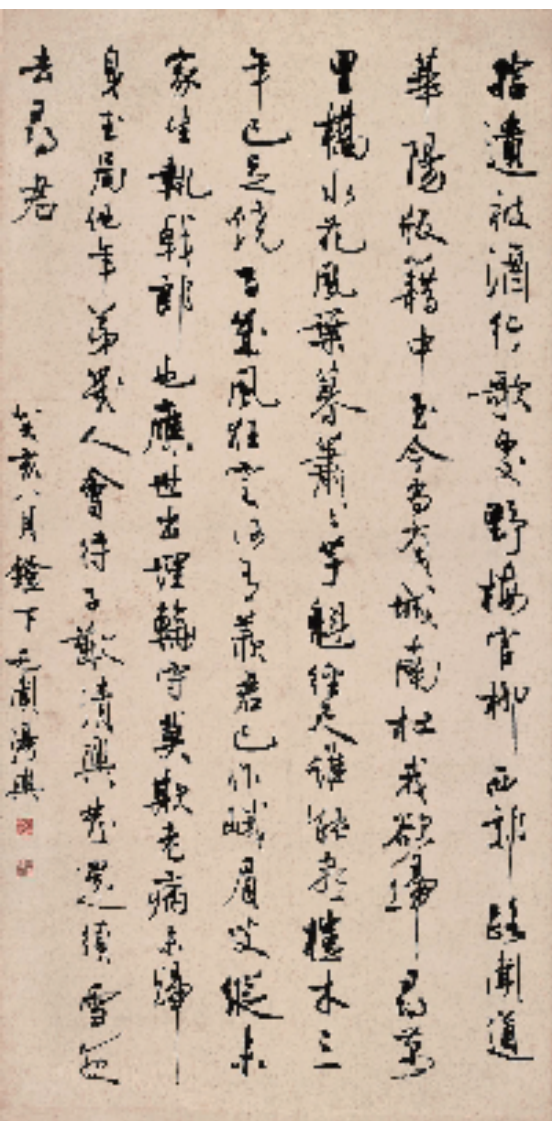 拾遺被酒行歌處野梅官柳西郊路聞道
華陽版籍中至今尚有城南杜我欲歸尋萬
里橋水花風葉暮蕭〻芋魁徑尺誰能盡榿木三
年已足燒百歲風狂定何有羨君已作峨眉叟縱未
家生執戟郎也應世出埋輪守莫欺老病未歸
身玉局他年第幾人會待子猷清興發還須雪夜
去尋君
癸亥八月鐙下